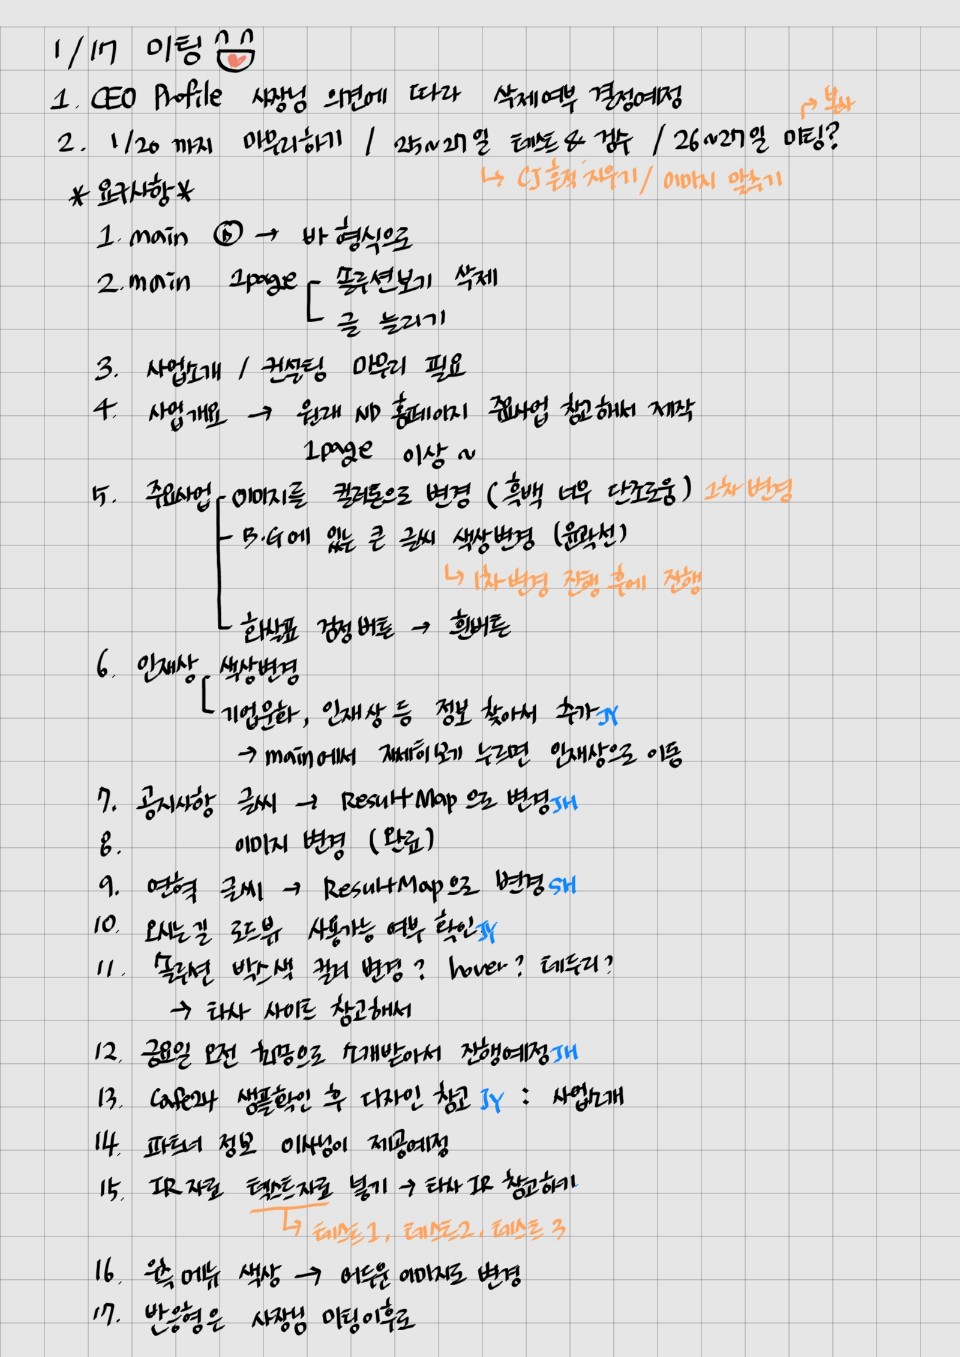 1/17 미팅
1. CEO Profile 사장님 의견에 따라 삭제여부 결정예정
→ 본사
2. 1/20 까지 마무리하기 / 25~27일 테스트 & 검수 / 26~27일 미팅?
↳ CJ 흔적 지우기 / 이미지 맞추기
* 요구사항 *
1. main → 바 형식으로
2. main 1page 솔루션보기 삭제
글 늘리기
3. 사업소개 / 컨설팅 마무리 필요
4. 사업개요 → 원래 ND 홈페이지 주요사업 참고해서 제작
1page 이상 ~
5. 주요사업 이미지를 컬러톤으로 변경 (흑백 너무 단조로움) 1차 변경
B.G에 있는 큰 글씨 색상변경 (윤곽선)
↳ 1차변경 진행 후에 진행
화살표 검정버튼 → 흰버튼
6. 인재상 색상변경
기업문화, 인재상 등 정보 찾아서 추가 JY
→ main에서 자세히보기 누르면 인재상으로 이동
7. 공지사항 글씨 → ResultMap 으로 변경 JH
8. 이미지 변경 (완료)
9. 연혁 글씨 → ResultMap으로 변경 SH
10. 오시는길 로드뷰 사용가능 여부 확인 JY
11. 솔루션 박스색 컬러 변경? hover? 테두리?
→ 타사 사이트 참고해서
12. 금요일 오전 소개받아서 진행예정 JH
13. Cafe24 샘플확인 후 디자인 참고 JY : 사업소개
14. 파트너 정보 이사님이 제공예정
15. IR자료 텍스트자료 넣기 → 타사 IR 참고하기
↳ 테스트1, 테스트2, 테스트3
16. 메뉴 색상 → 어두운 이미지로 변경
17. 반응형은 사장님 미팅이후로